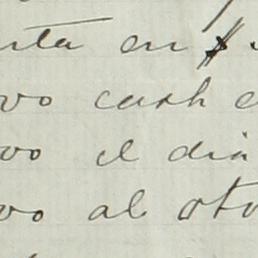 nta en $
vo cash e
vo el dia
vo al oto